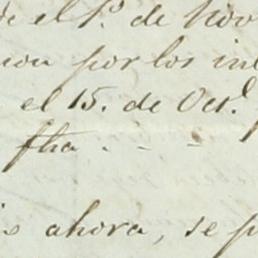 de el 1º de Nov
por los in
el 15. de Octe.
fha . - -
ahora, se p